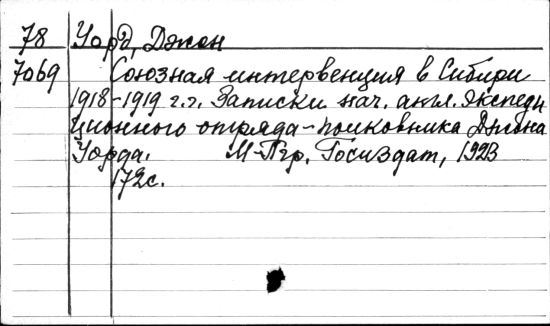 78 Уорд, Джон
7069 Союзная интервенция в Сибири
1918-1919 г.г. Записки нач. англ. экспеди
ционного отряда - полковника Джона
Уорда. М-Пгр, Госиздат, 1923
172с.